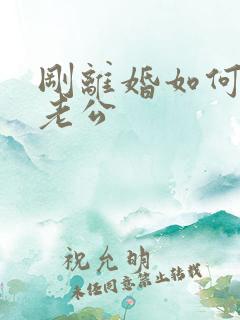 剛離婚如何
老公
祝允明
未经同意禁止转载